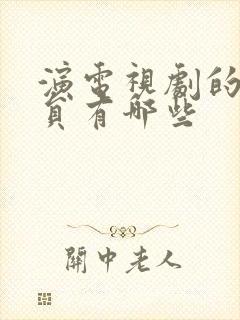 演電視劇的
員有哪些
關中老人